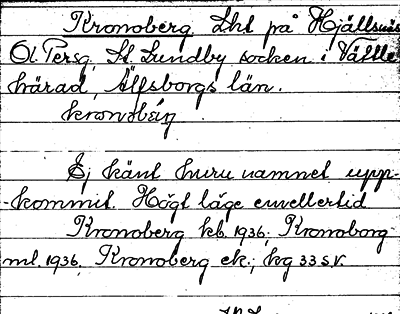 Kronoberg Lht på Hjällsnäs
Ol. Persg. St. Lundby socken i Vättle
härad, Älfsborgs län.
kronobärj
Ej känt huru namnet upp-
-kommit. Högt läge emellertid
Kronoberg kb. 1936; Kronoborg
ml. 1936, Kronoberg ek.; kg 33 s.v.